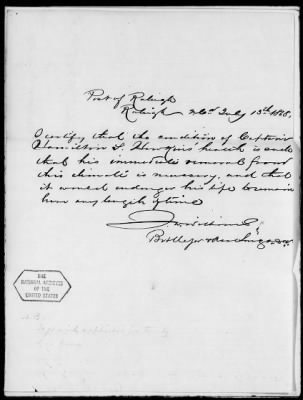 Post of Raleigh
Raleigh N.C. July 13th 1868.
I certify that the condition of Captain
Hamilton S. health is such
that his immediate removal from
this climate is necessary, and that
it would endanger his life to remain
here any length of time
Bvt Major & Asst Surg
THE
NATIONAL ARCHIVES
OF THE
UNITED STATES